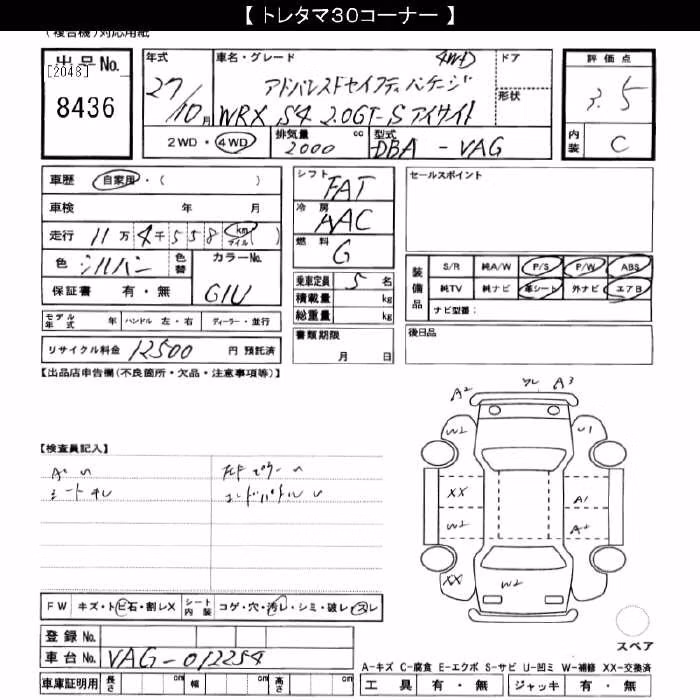 【 トレタマ30コーナー 】
(複合機)対応用紙
出品No.
[2048]
8436
年式
27/10月
車名・グレード
4WD
アドバンスドセイフティパッケージ
WRX S4 2.0GT-S アイサイト
ドア
形状
評価点
3.5
内装
C
2WD・4WD
排気量
2000
cc
型式
DBA - VAG
車歴 自家用・( )
車検 年 月
走行 11万4千558 km マイル ( )
色 シルバン
色替
カラーNo.
G1U
保証書 有・無
モデル年式 年 ハンドル 左・右 ディーラー・並行
リサイクル料金 12500 円 預託済
シフト FAT
冷房 AAC
燃料 G
乗車定員 5 名
積載量 kg
総重量 kg
書類期限
月 日
セールスポイント
装備品
S/R 純A/W P/S P/W ABS
純TV 純ナビ 革シート 外ナビ エアB
ナビ型番:
後日品
【出品店申告欄(不良箇所・欠品・注意事項等)】
【検査員記入】
A2 A3
W2 U1
XX A1
W2 A2
XX W2
FW キズ・トビ石・割レX シート内装 コゲ・穴・汚レ・シミ・破レ・スレ
登録No.
車台No. VAG-012254
車庫証明用 長さ cm 幅 cm 高さ cm
スペア
A-キズ C-腐食 E-エクボ S-サビ U-凹ミ W-補修 XX-交換済
工具 有・無 ジャッキ 有・無